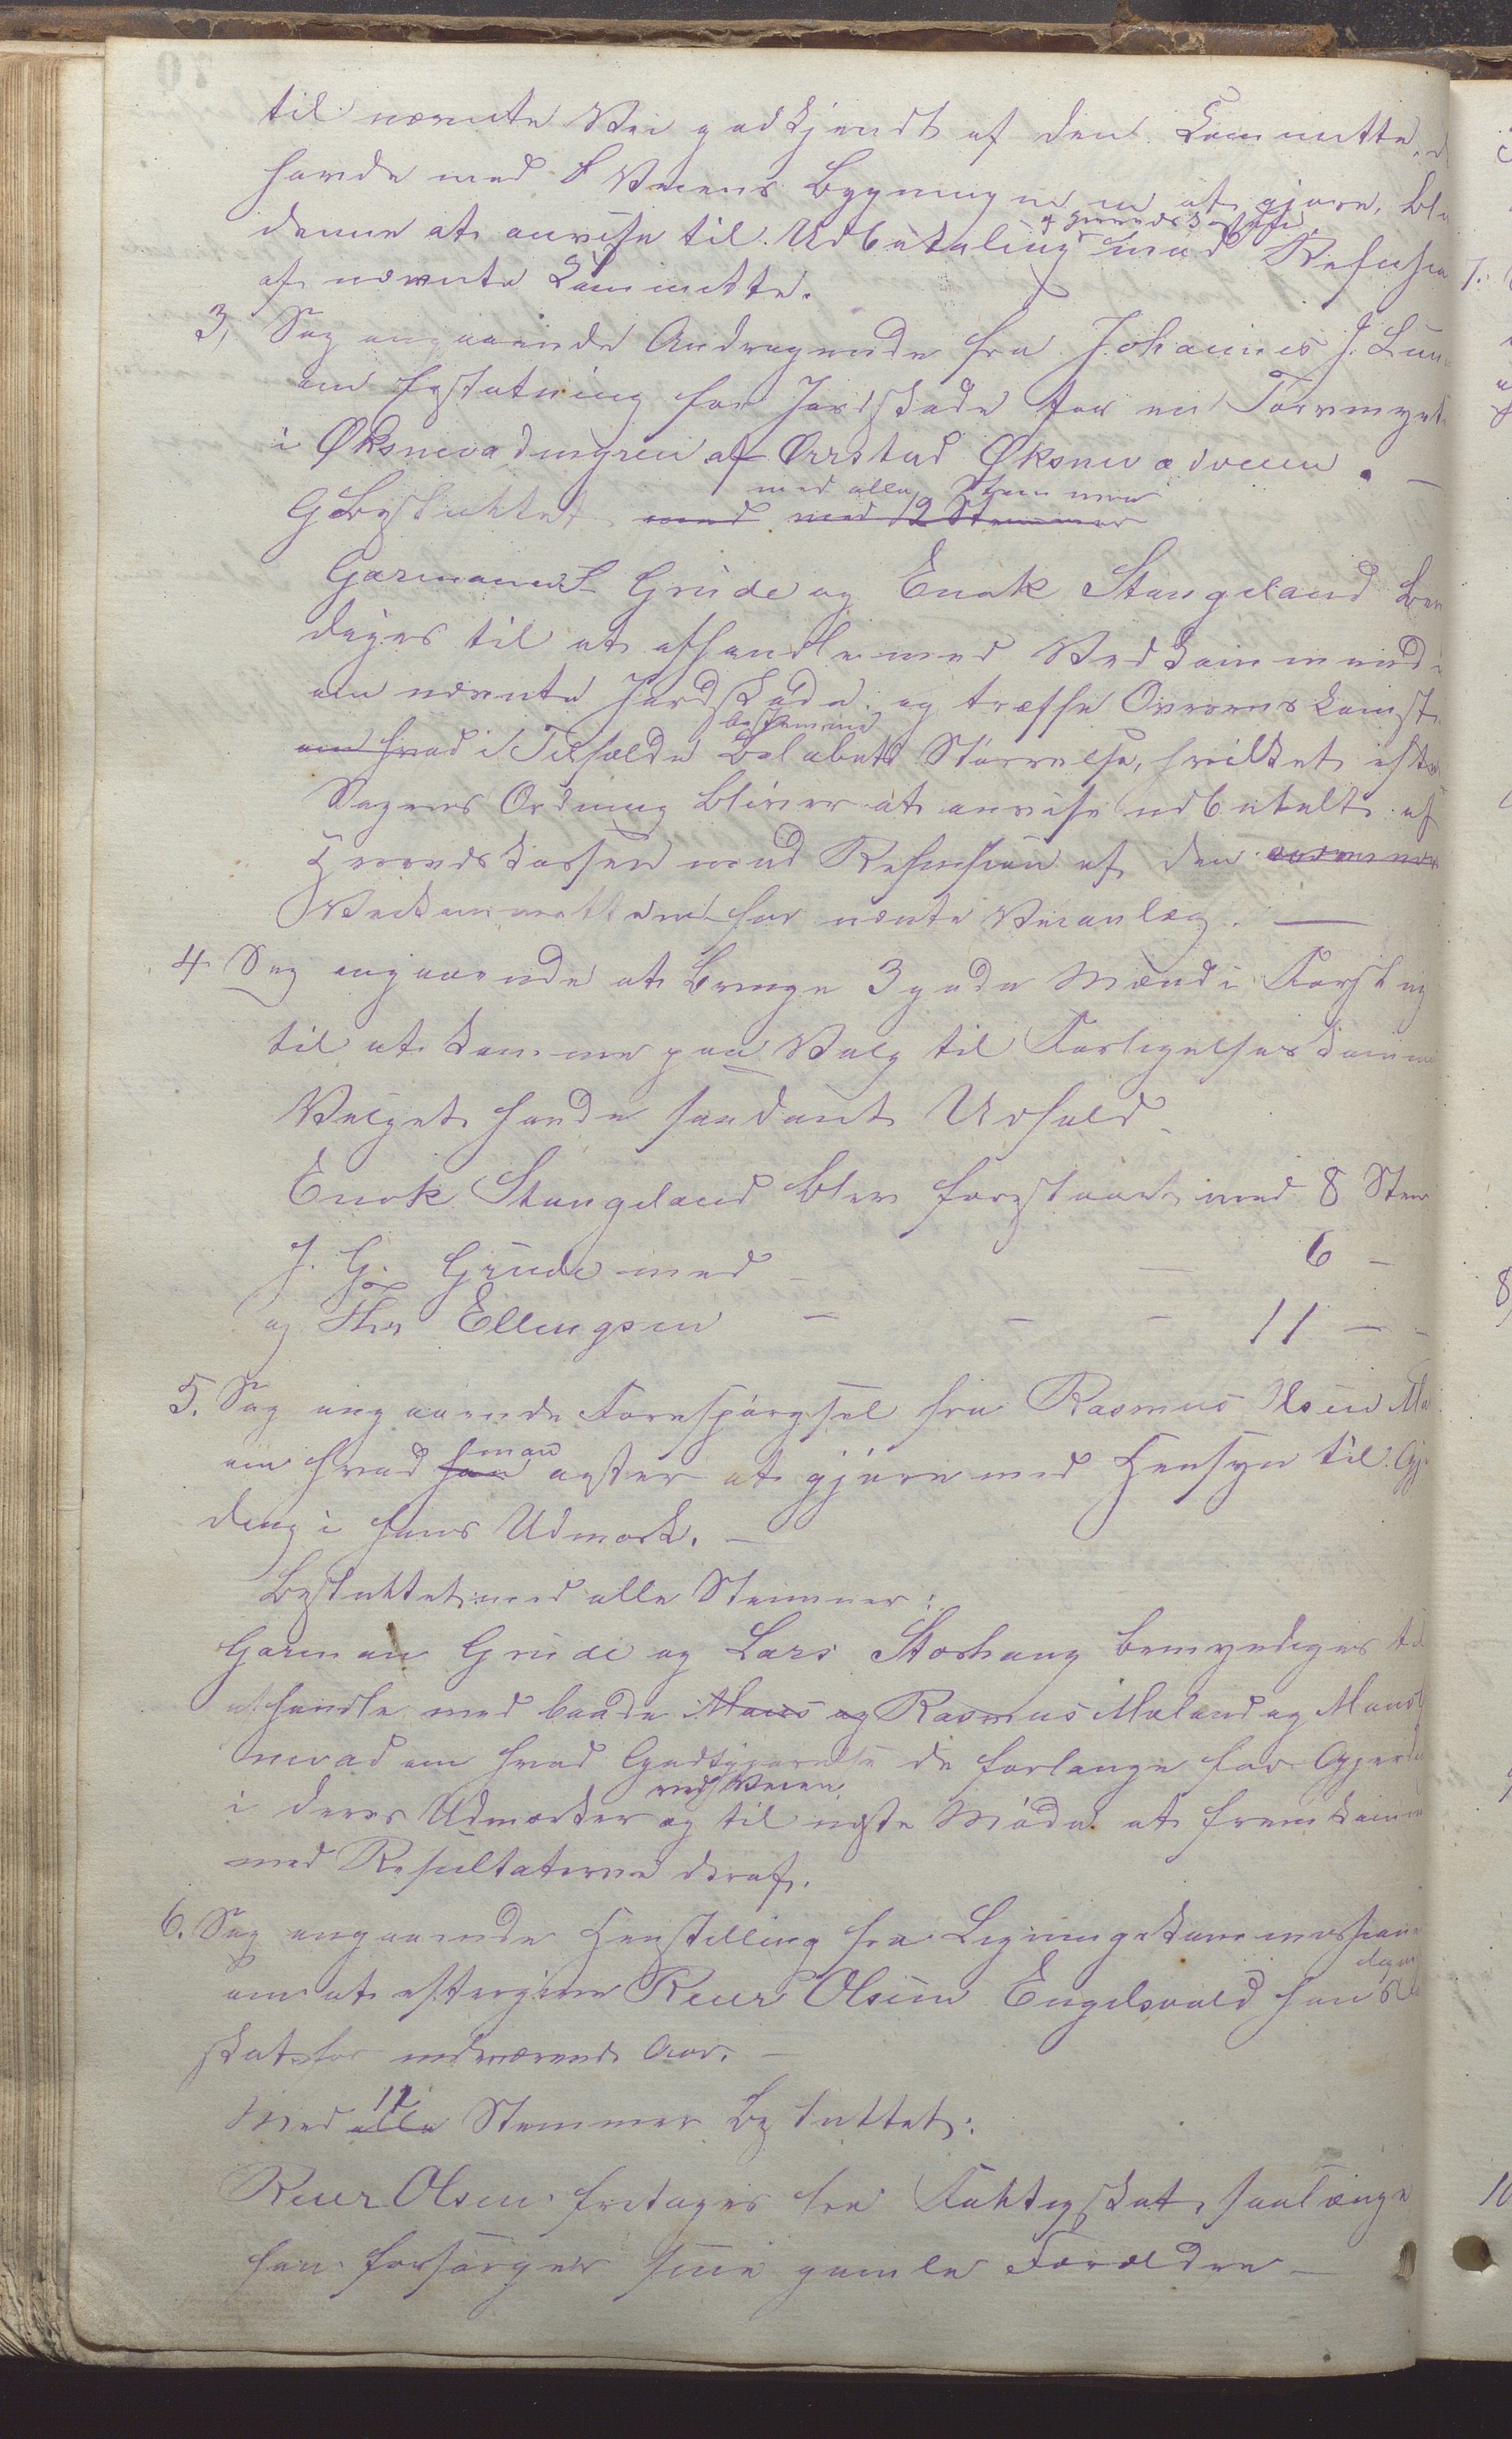 til nævnte Vei godkjendt af den Committe, d
havde med Veiens Bygning at gjøre, bl
denne at anvise til Udbetaling af Herredskassen mod Refusion
af nævnte Committe.
3, Sag angaaende Andragende fra Johannes J. Lun
om Erstatning for Jordskade for en Torvmyr
i Øksnevadmyren af Orrstad Øksnevadveien. —
Besluttet med alle Stemmer med med 12 Stemmer
Garmann Grude og Enok Stangeland bem
diges til at afhandle med Vedkommende
om nævnte Jordskade og træffe Overenskomst
om hvad i Tilfælde bestemme Beløbets Størrelse, hvilket efter
Sagens Ordning bliver at anvise udbetalt af
Herredskassen mod Refusion af den
Veikommitteen for nævnte Veianlæg. —
4. Sag angaaende at bringe 3 gode Mænd i Forslag
til at komme paa Valg til Forligelseskomm
Valget havde saadant Udfald
Enok Stangeland blev foreslaaet med 8 Stem
J. G. Grude med — — 6 —
og Ths Ellingsen — — — 11 — -
5. Sag angaaende Forespørgsel fra Rasmus Olsen Ma
om hvad han man agter at gjøre med Hensyn til Gjer
ding i hans Udmark. —
Besluttet med alle Stemmer:
Garman Grude og Lars Storhaug bemyndiges til
at handle med baade Maus og Rasmus Maland og Maus
nevad om hvad Godtgjørelse de forlange for Gjerde
i deres Udmarker ved Veien og til næste Møde at fremkomme
med Resultaterne deraf.
6. Sag angaaende Henstilling fra Ligningskommissionen
om at eftergive Reier Olsen Engelsvold hans
skat for indeværende Aar. —
Med alle 11 Stemmer besluttet:
Reier Olsen fritages fra Fattigskat, saalænge
han forsørger sine gamle Forældre —